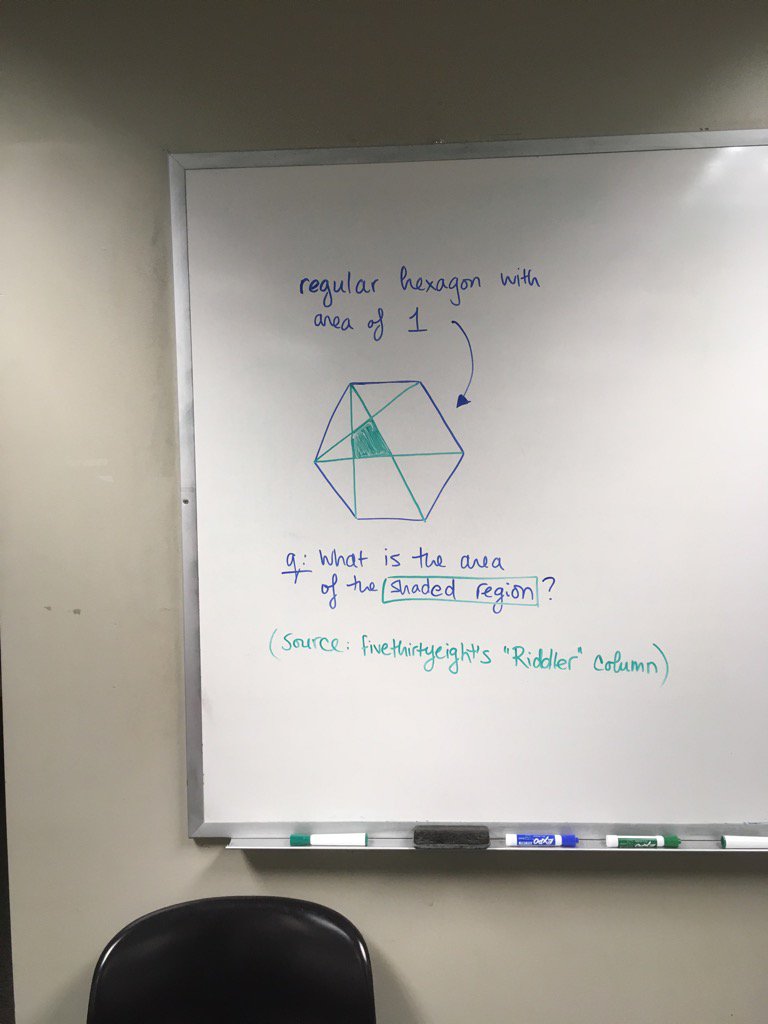 regular hexagon with
area of 1
q: What is the area
of the shaded region?
(source: fivethirtyeight's "Riddler" column)
EXPO